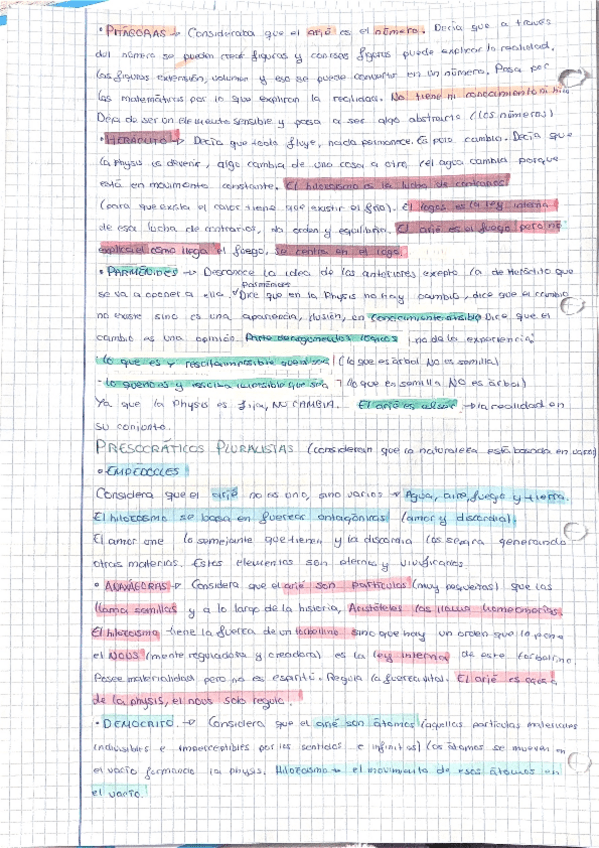 • PITÁGORAS → Consideraba que el arjé es el número. Decía que a través
del número se pueden crear figuras y con esas figuras puede explicar la realidad.
Las figuras extensión, volumen y eso se puede convertir en un número. Pasa por
las matemáticas por lo que explican la realidad. No tiene ni conocimiento ni
Deja de ser un elemento sensible y pasa a ser algo abstracto (los números)
• HERÁCLITO → Decía que todo fluye, nada permanece. Es puro cambio. Decía que
la Physis es devenir, algo cambia de una cosa a otra (el agua cambia porque
está en movimiento constante. El hilozoismo es la lucha de contrarios
(para que exista el calor tiene que existir el frío). El logos es la ley interna
de esa lucha de contrarios, da orden y equilibrio. El arjé es el fuego pero no
explica el cómo llega el fuego, se centra en el logo.
• PARMÉNIDES → Desconoce la idea de los anteriores excepto la de Heráclito que
se va a oponer a ella. Parménides Dice que en la Physis no hay cambio, dice que el cambio
no existe sino es una apariencia, ilusión, en conocimiento Dice que el
cambio es una opinión. Parte de argumentos lógicos no de la experiencia:
· lo que es y imposible que (lo que es árbol No es semilla)
· lo que no es y es imposible que sea (lo que es semilla NO es árbol)
Ya que la Physis es fija, NO CAMBIA. El arjé es el ser → la realidad en
su conjunto.
PRESOCRÁTICOS PLURALISTAS (consideran que la naturaleza está basada en varios)
• EMPÉDOCLES
Considera que el arjé no es uno, sino varios → Agua, aire, fuego y tierra.
El hilozoismo se basa en fuerzas antagónicas (amor y discordia).
El amor une lo semejante que tienen y la discordia los separa generando
otras materias. Estos elementos son eternos y vivificantes.
• → Considera que el arjé son partículas (muy pequeñas) que las
llama semillas y a lo largo de la historia, Aristóteles las llama homeomerías.
El hilozoismo tiene la fuerza de un torbellino sino que hay un orden que lo pone
el NOUS (mente reguladora y creadora) es la ley interna de este torbellino.
Posee materialidad pero no es espíritu. Regula la fuerza vital. El arjé es causa
de la physis, el nous solo regula.
• DEMÓCRITO → Considera que el arjé son átomos (aquellas partículas materiales
indivisibles e imperceptibles por los sentidos e infinitas) (los átomos se mueven en
el vacío formando la physis. Hilozoismo → el movimiento de esos átomos en
el vacío.